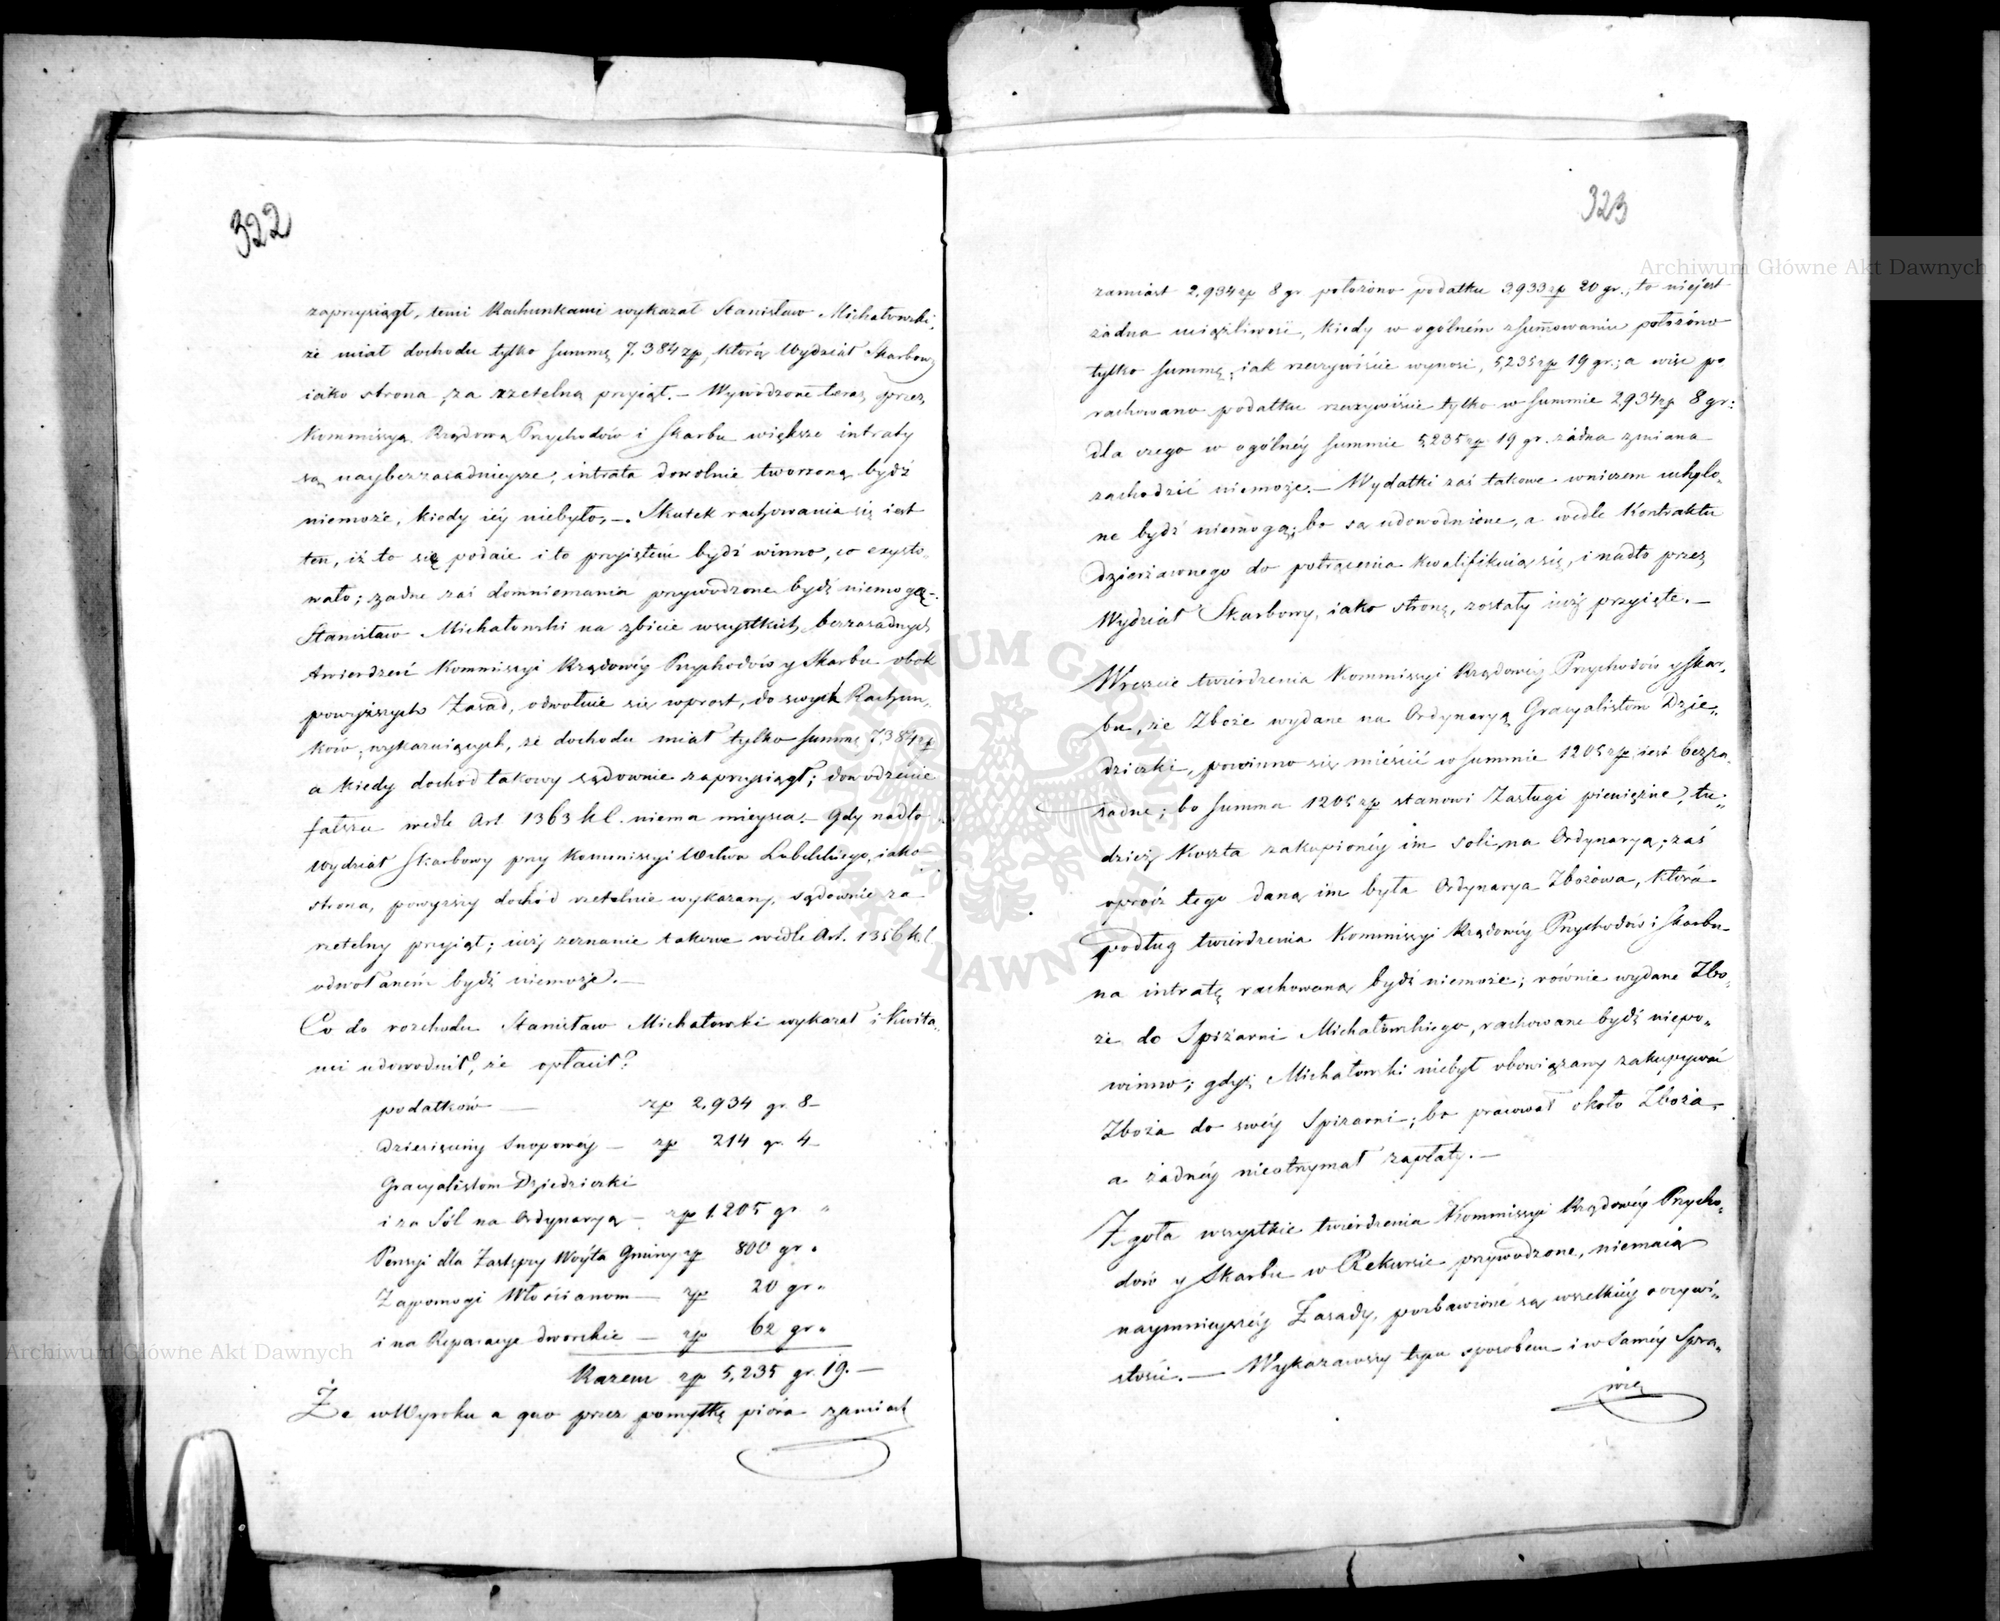 322
zaprzysiągł, temi Rachunkami wykazał Stanisław Michałowski,
że miał dochodu tylko summę 7.384 zp, którą Wydział Skarbowy
iako strona, za rzetelną przyiął. – Wywodzone teraz przez
Kommissyą Rządową Przychodów i Skarbu większe intraty
są naybezzasadnieysze; intrata dowolnie tworzoną bydź
niemoże, kiedy iéy niebyło. – Skutek rachowania się iest
ten, iż to się podaie i to przyiętem bydź winno, co exysto-
wało; żadne zaś domniemania przywodzone bydź niemogą. –
Stanisław Michałowski na zbicie wszystkich bezzasadnych
twierdzeń Kommissyi Rządowéy Przychodów y Skarbu obok
powyższych Zasad, odwołuie się wprost, do swych Rachun-
ków, wykazuiących, że dochodu miał tylko summę 7,384 zp
a kiedy dochod takowy sądownie zaprzysiągł; dowodzenie
fałszu wedle Art 1363 k c. niema mieysca. – Gdy nadto
Wydział Skarbowy przy Kommissyi Wdztwa Lubelskiego, iako
strona, powyższy dochód rzetelnie wykazany, sądownie za
rzetelny przyiął; iuż zeznanie takowe wedle Art. 1356 k.c
odwołaném bydź niemoże. –
Co do rozchodu Stanisław Michałowski wykazał i Kwita-
mi udowodnił, że opłacił?
podatków — zp 2,934 gr. 8 –
dziesięciny Snopowéy – zp 214 gr. 4 –
Gracyalistom Dziedziczki
i za Sól na Ordynaryą – zp 1.205 gr "
Pensyi dla Zastępcy Woyta Gminy zp 800 gr "
Zapomogi Włościanom — zp 20 gr "
i na Reparacye dworskie — zp 62 gr "
Razem zp 5,235 gr. 19. —
Że w Wyroku a quo przez pomyłkę pióra zamiast
323
zamiast 2,934 zp 8 gr położono podatku 3933 zp 20 gr., to nie jest
żadna uciążliwość, kiedy w ogólném zsumowaniu położono
tylko summę, iak rzeczywiście wynosi, 5,235 zp 19 gr.; a więc po
rachowano podatku rzeczywiście tylko w summie 2934 zp 8 gr:
dla czego w ogólnéy summie 5,235 zp 19 gr. żadna zmiana
zachodzić niemoże. – Wydatki zaś takowe wniczem uchylo-
ne bydź niemogą; bo są udowodnione, a wedle Kontraktu
dzierżawnego do potrącenia kwalifikuią się, i nadto przez
Wydział Skarbowy, iako stronę, zostały iuż przyięte. –
Wreszcie twierdzenia Kommissyi Rządowéy Przychodów y Skar-
bu, że Zboże wydane na Ordynaryą Gracyalistom Dzie-
dziczki, powinno się mieścić w summie 1205 zp iest bezza-
sadne; bo summa 1205 zp stanowi Zasługi pieniężne, tu-
dzież koszta zakupionéy im soli na Ordynaryą; zaś
oprócz tego daną im była Ordynarya Zbożowa, która
podług twierdzenia Kommissyi Rządowéy Przychodów i Skarbu
na intratę rachowaną bydź niemoże; równie wydane Zbo-
że do Spiżarni Michałowskiego, rachowane bydź niepo-
winno; gdyż Michałowski niebył obowiązany zakupywać
Zboża do swéy Spiżarni; bo pracował około Zboża,
a żadnéy nieotrzymał zapłaty. –
Zgoła wszystkie twierdzenia Kommissyi Rządowéy Przycho-
dów y Skarbu w Rekursie przywodzone, niemaią
naymnieyszéy Zasady, pozbawione są wszelkiéy oczywi-
stości. — Wykazawszy tym sposobem i w saméy Spra-
wie
Archiwum Główne Akt Dawnych
Archiwum Główne Akt Dawnych
ARCHIWUM GŁÓWNE AKT DAWNYCH